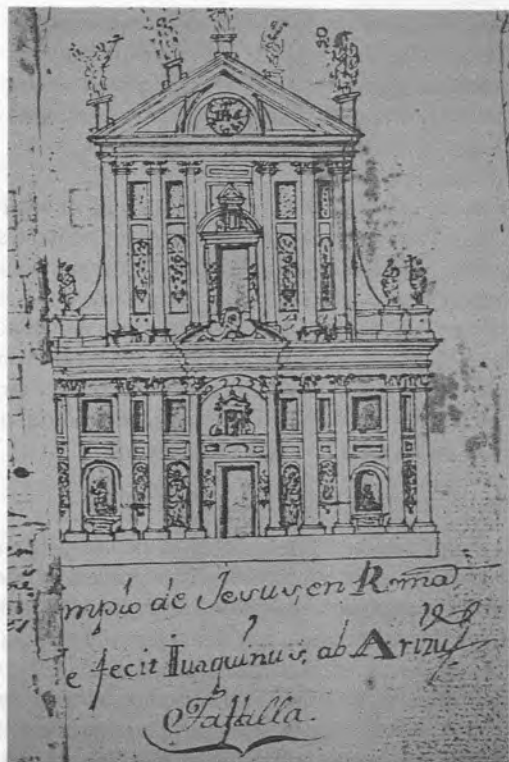 mpío de Jesus, en Roma,
e fecit Iuaquinus, ab Arizu
Taffalla.